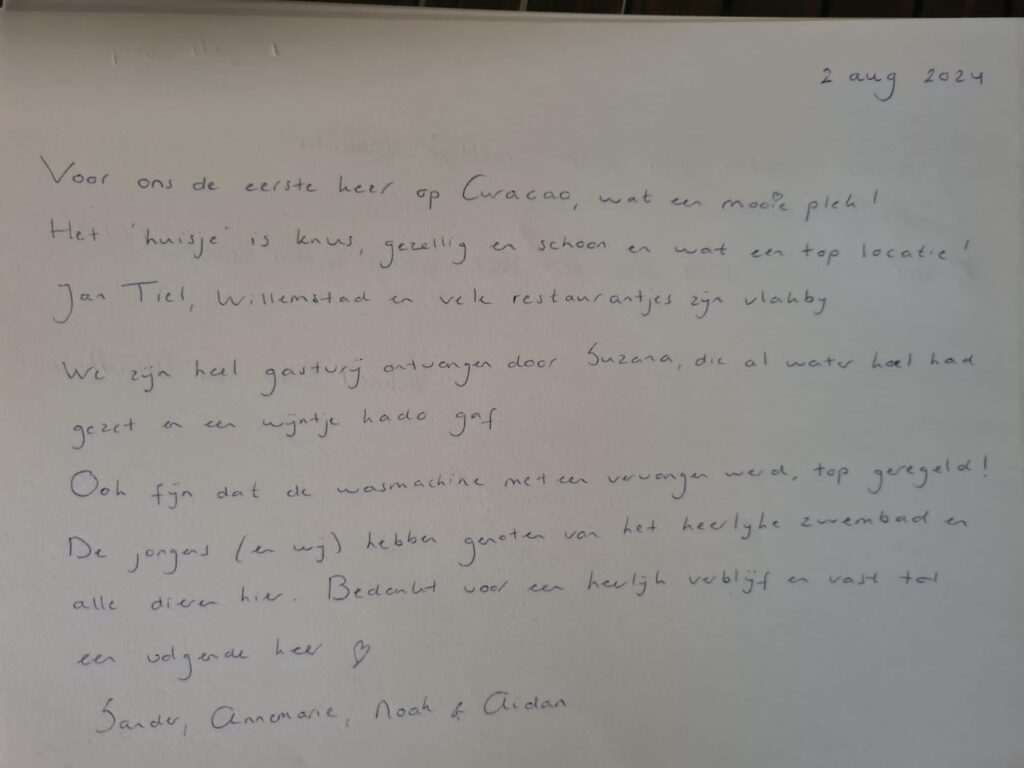 2 aug 2024
Voor ons de eerste keer op Curacao, wat een mooie plek!
Het 'huisje' is knus, gezellig en schoon en wat een top locatie!
Jan Tiel, Willemstad en vele restaurantjes zijn vlakby
We zijn heel gastvrij ontvangen door Suzana, die al water koel had
gezet en een wijntje kado gaf.
Ook fijn dat de wasmachine meteen vervangen werd, top geregeld!
De jongens (en wij) hebben genoten van het heerlyke zwembad en
alle dieren hier. Bedankt voor een heerlijk verblijf en vast tot
een volgende keer ♡
Sander, Annemarie, Noah & Aidan